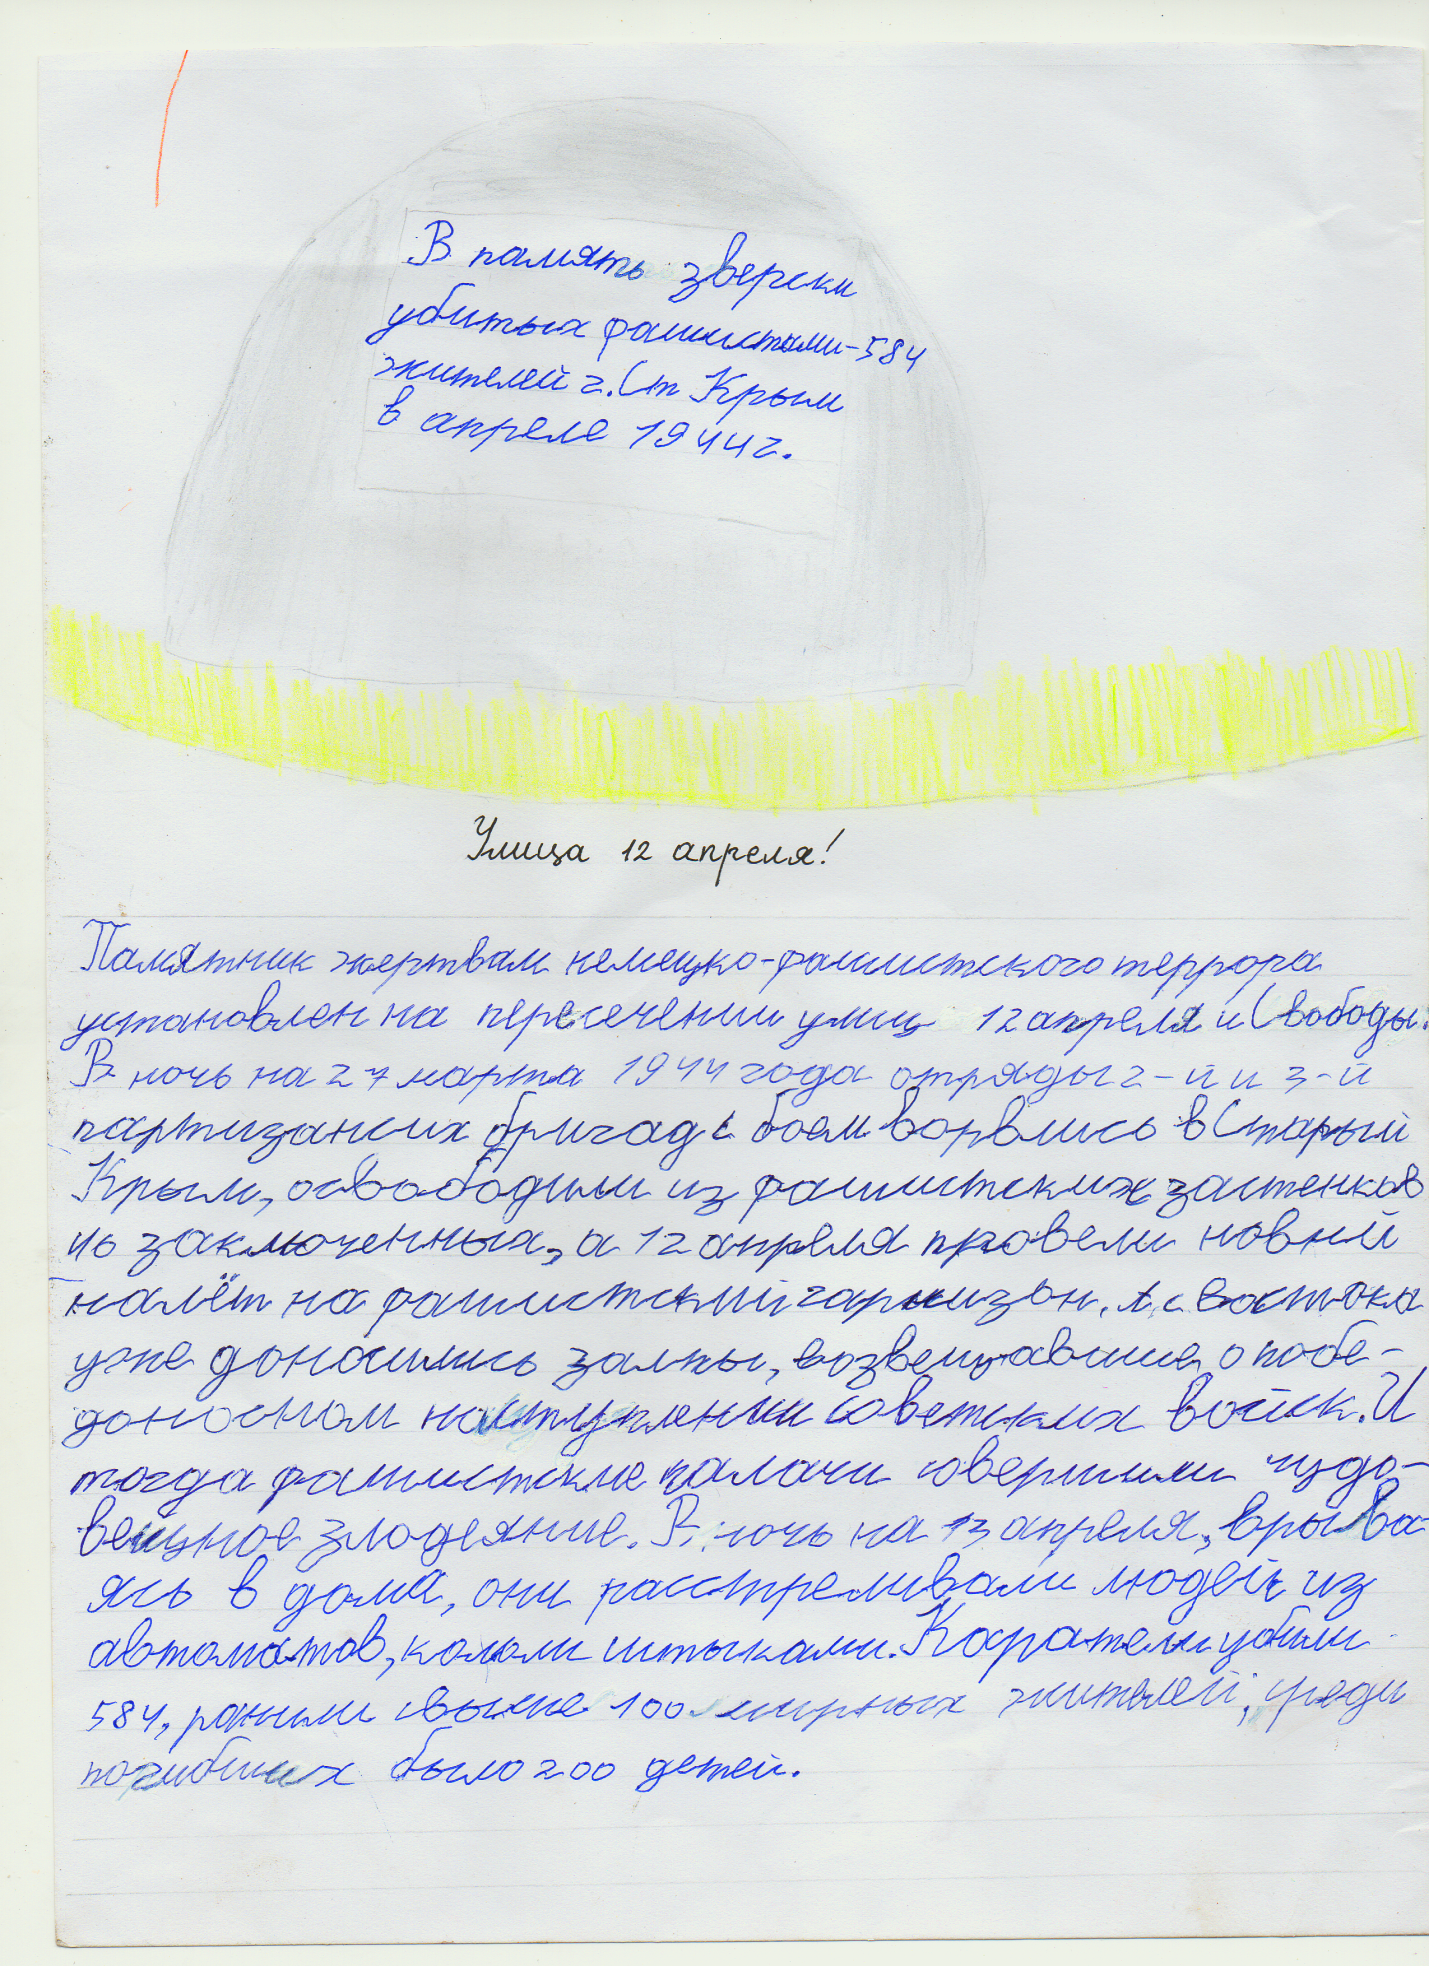 В память зверски
убитых фашистами-584
жителей г. Ст Крым
в апреле 1944г.
Улица 12 апреля!
Памятник жертвам немецко-фашистского террора
установлен на пересечении улиц 12 апреля и Свободы.
В ночь на 27 марта 1944 года отряды 2-й и 3-й
партизанских бригад с боем ворвались в Старый
Крым, освободили из фашистских застенков
46 заключенных, а 12 апреля провели новый
налёт на фашистский гарнизон. А с востока
уже доносились залпы, возвещавшие о побе-
доносном наступлении советских войск. И
тогда фашистские палачи совершили чудо-
вещное злодеяние. В ночь на 13 апреля, врыва-
ясь в дома, они расстреливали людей из
автоматов, кололи штыками. Каратели убили
584, ранили свыше 100 мирных жителей, среди
погибших было 200 детей.